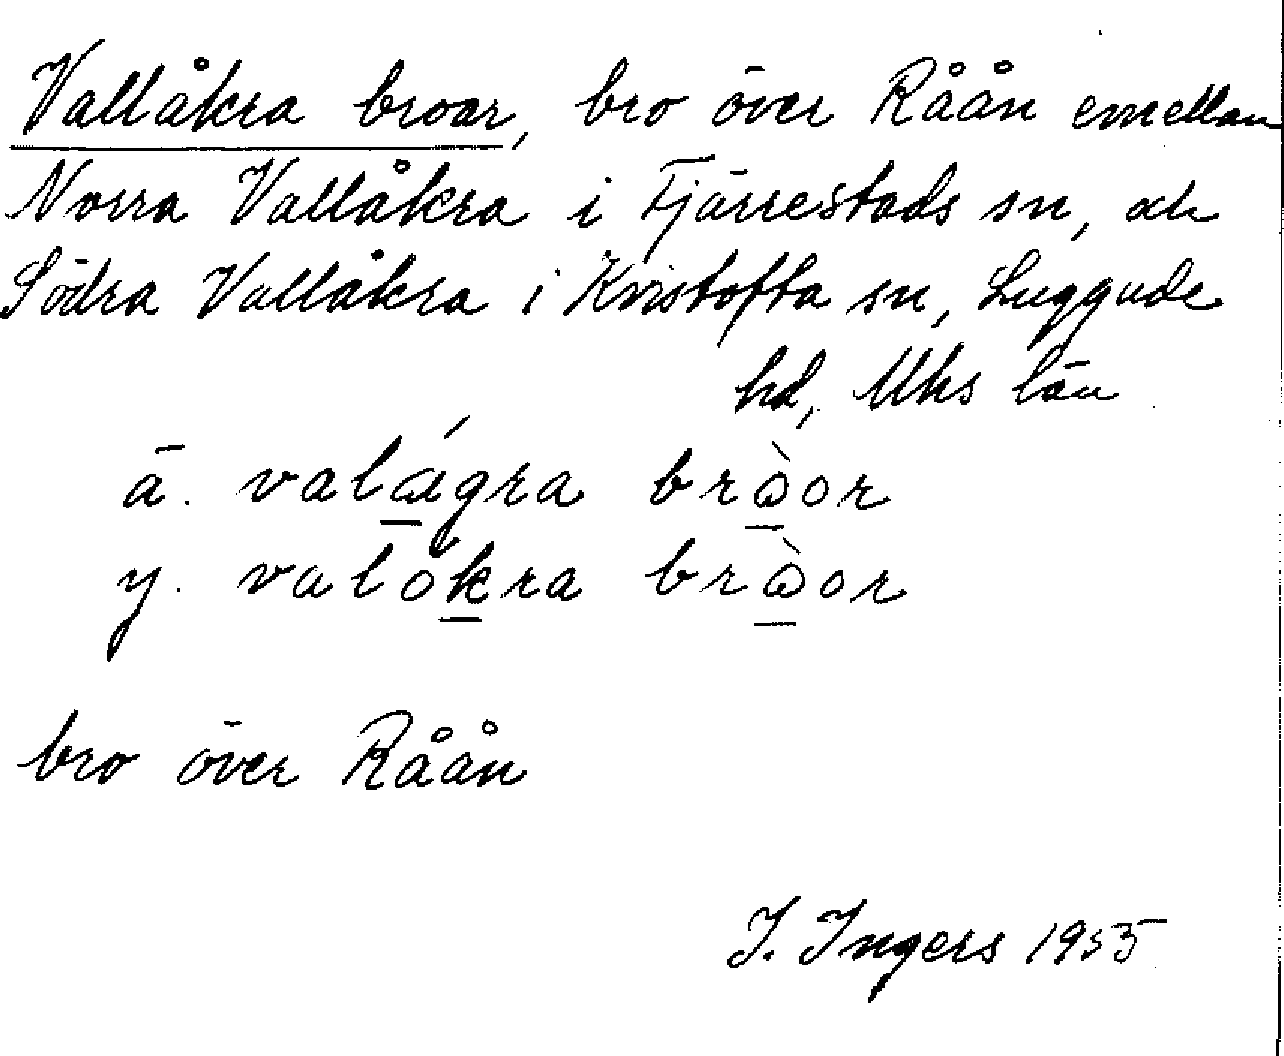 Vallåkra broar, bro över Råån emellan
Norra Vallåkra i Fjärrestads sn, och
Södra Vallåkra i Kvistofta sn, Luggude
hd, Mhs län
ä. valågra bròor
y. valókra bròor
bro över Råån
I. Ingers 1955